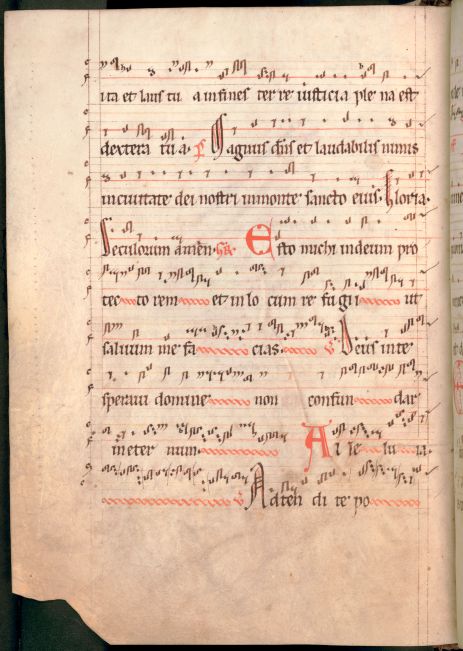 ita et laus tua in fines terre iusticia plena est
dextera tua. Magnus dns et laudabilis nimis
in civitate dei nostri in monte sancto eius. Gloria.
Seculorum amen. Gr. Esto michi in deum pro
tec to rem et in lo cum re fu gii ut
salvum me fa cias. V Deus in te
speravi domine non confun dar
in eter num. Al le lu ia.
V Ad te h di te po